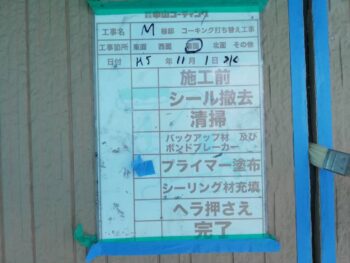 中山コーティング
工事名 M 様邸 コーキング打ち替え工事
工事箇所 東面 西面 南面 北面 その他
日付 H5年 11月 1日
施工前
シール撤去
清掃
バックアップ材 及び
ボンドブレーカー
プライマー塗布
シーリング材充填
ヘラ押さえ
完了